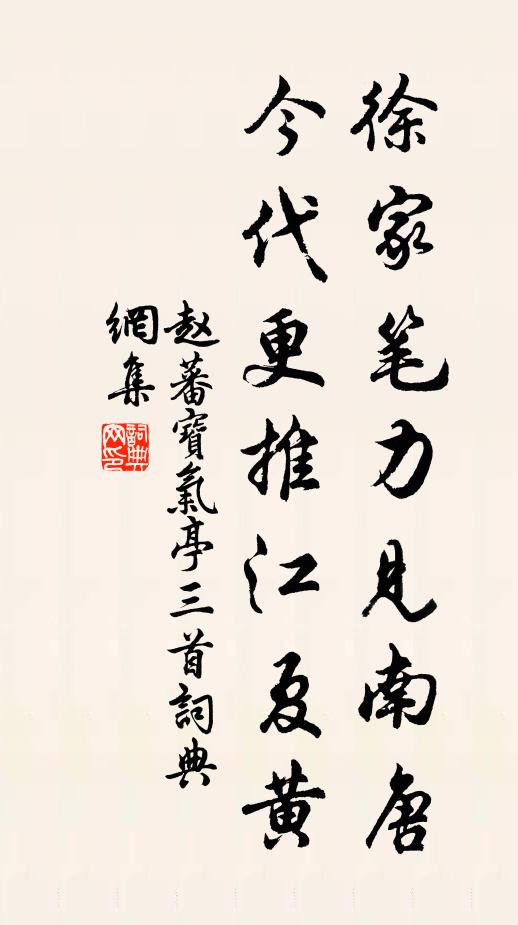 徐家笔力见南唐
今代更推江夏黄
赵蕃寶氣亭三首詞典
網集
詞典
网印